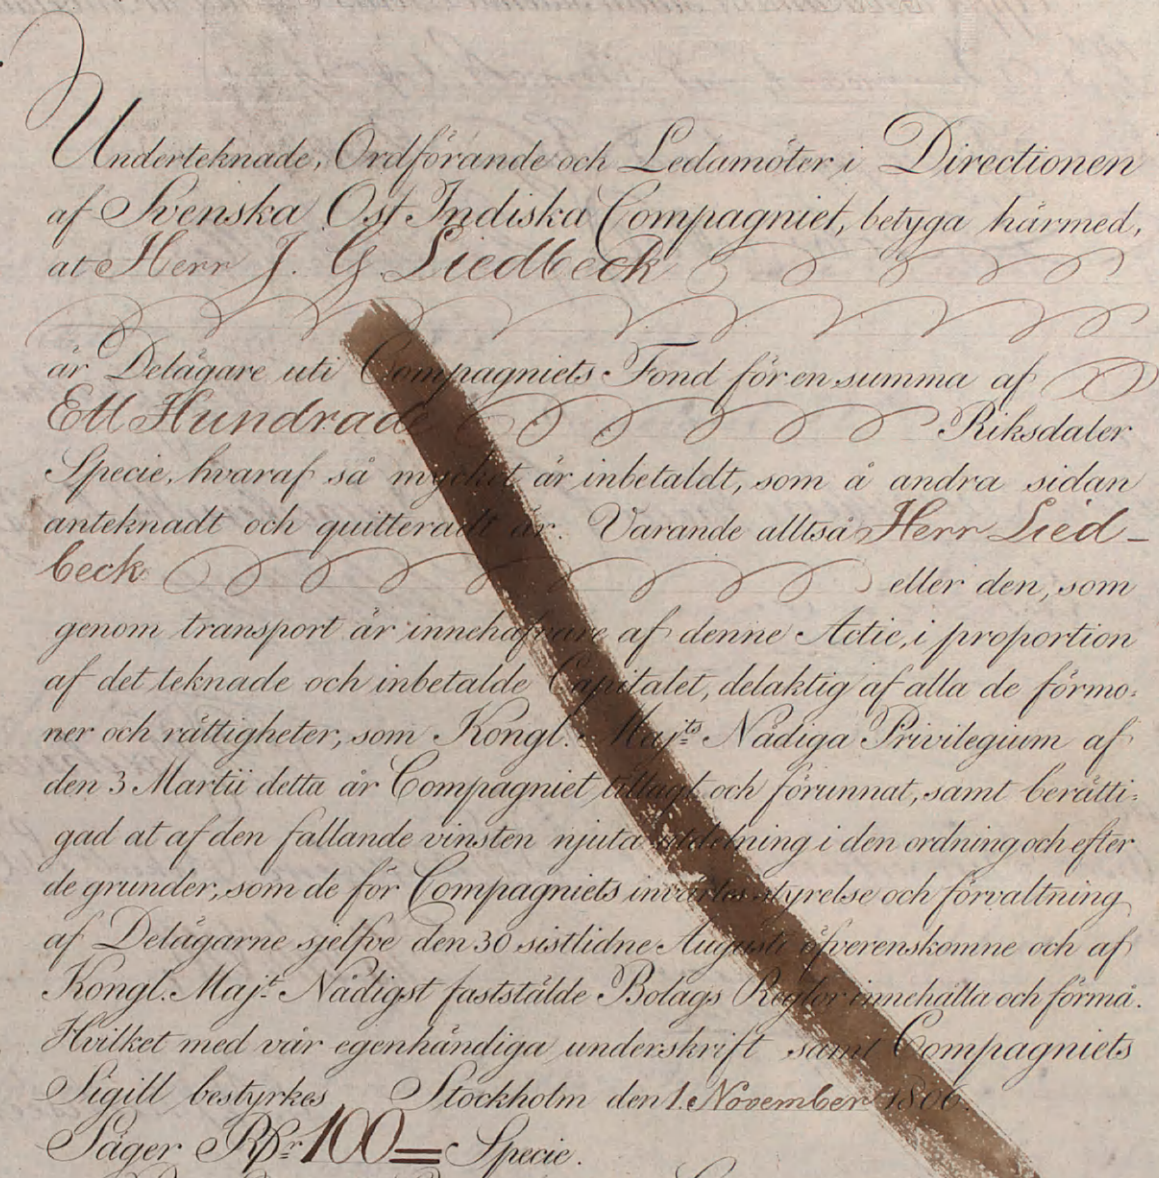 Underteknade, Ordförande och Ledamöter i Directionen
af Svenska Ost Indiska Compagniet, betyga härmed,
at Herr J. G Liedbeck
är Delägare uti Compagniets Fond för en summa af
Ett Hundrade Riksdaler
Specie, hvaraf så mycket är inbetaldt, som å andra sidan
anteknadt och quitteradt är. Varande alltså Herr Lied-
beck eller den, som
genom transport är innehafvare af denne Actie, i proportion
af det teknade och inbetalde Capitalet, delaktig af alla de förmo-
ner och rättigheter, som Kongl. Maj:ts Nådiga Privilegium af
den 3 Martii detta år Compagniet tillagt och förunnat, samt berätti-
gad at af den fallande vinsten njuta utdelning i den ordning och efter
de grunder, som de för Compagniets invärtes styrelse och förvaltning
af Delägarne sjelfve den 30 sistlidne Augusti öfverenskomne och af
Kongl. Maj:t Nådigst faststälde Bolags Reglor innehålla och förmå.
Hvilket med vår egenhändiga underskrift samt Compagniets
Sigill bestyrkes Stockholm den 1. November 1806.
Säger Rdr 100= Specie.